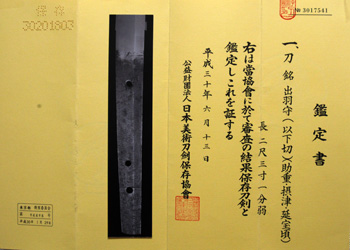 鑑定書
一、刀 銘 出羽守(以下切)(助重・摂津・延宝頃)
長 二尺三寸一分弱
右は當協會に於て審査の結果保存刀剣と
鑑定しこれを証する
平成三十年六月十三日
公益財団法人 日本美術刀剣保存協會
№ 3017541
保存
30201803